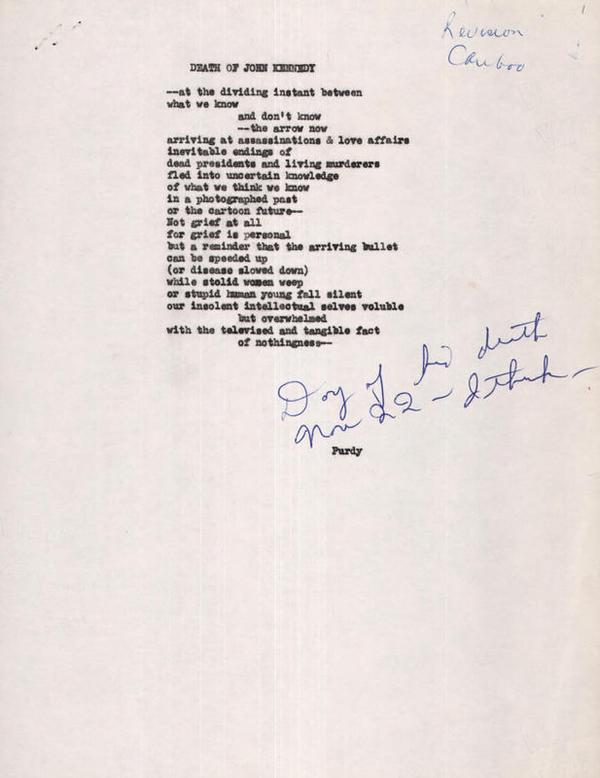 1
Revision
Cariboo
DEATH OF JOHN KENNEDY
--at the dividing instant between
what we know
and don't know
--the arrow now
arriving at assassinations & love affairs
inevitable endings of
dead presidents and living murderers
fled into uncertain knowledge
of what we think we know
in a photographed past
or the cartoon future--
Not grief at all
for grief is personal
but a reminder that the arriving bullet
can be speeded up
(or disease slowed down)
while stolid women weep
or stupid human young fall silent
our insolent intellectual selves voluble
but overwhelmed
with the televised and tangible fact
of nothingness--
Day of his death
Nov 22 - I think -
Purdy